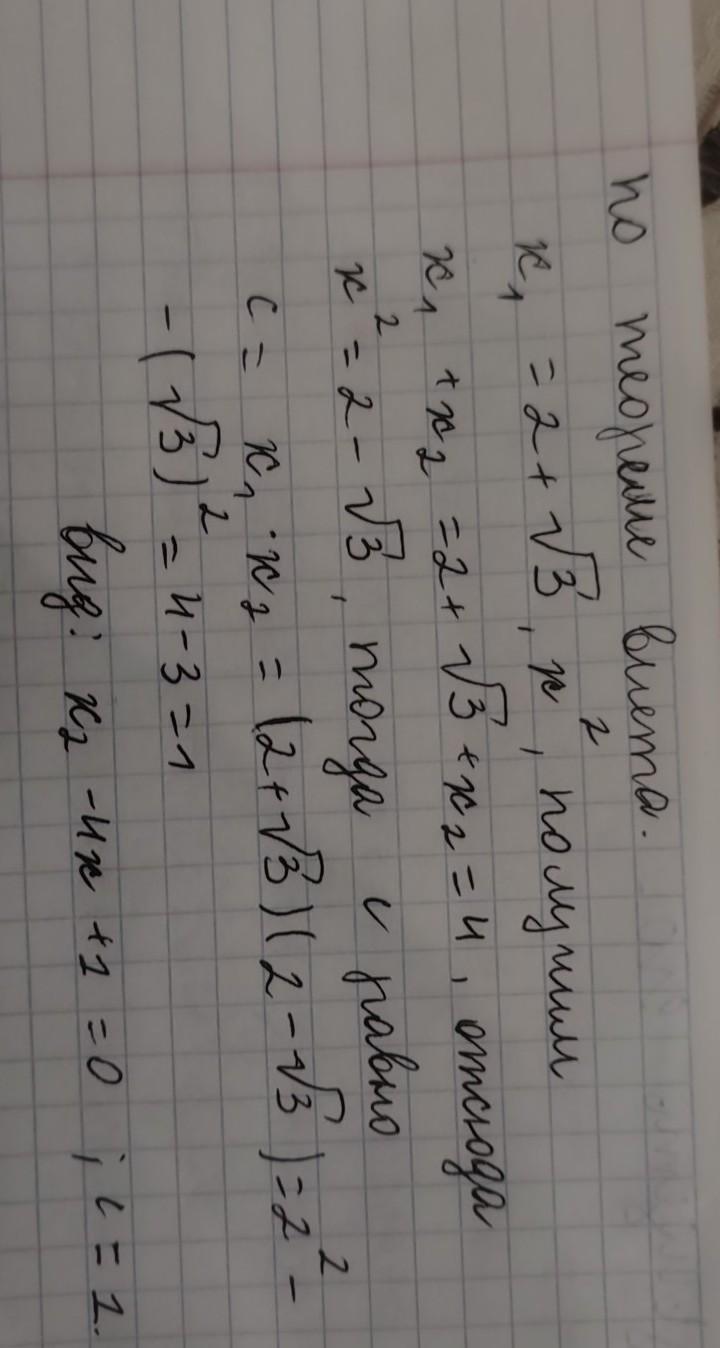 по теореме виета.
x₁ = 2 + √3, x², получим
x₁ + x₂ = 2 + √3 + x₂ = 4, отсюда
x² = 2 - √3, тогда c равно
c = x₁ · x₂ = (2 + √3)(2 - √3) = 2² -
- (√3)² = 4 - 3 = 1
вид: x₂ - 4x + 1 = 0 ; c = 1.